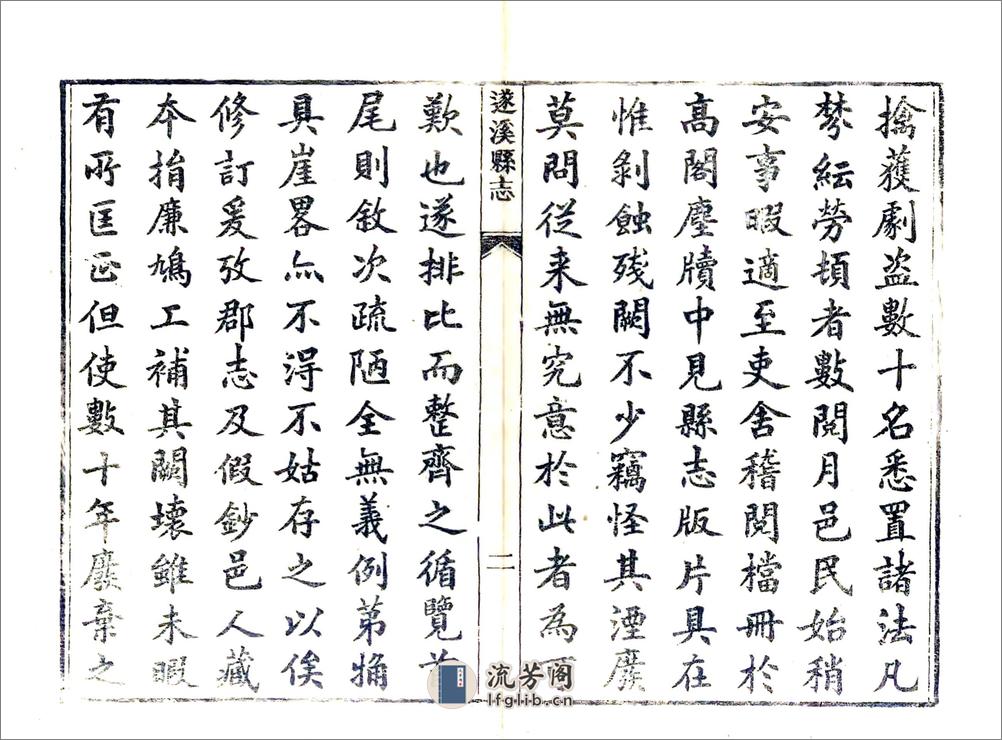 擒獲劇盜數十名悉置諸法凡
棼紜勞頓者數閱月邑民始稍
安事暇適至吏舍稽閱檔冊於
高閣塵牘中見縣志版片具在
惟剝蝕殘闕不少竊怪其湮廢
莫問從来無究意於此者為可
遂溪縣志
二
歎也遂排比而整齊之循覽首
尾則敘次疏陋全無義例第觕
具崖畧亦不淂不姑存之以俟
修訂爰攷郡志及假鈔邑人藏
本捐廉鳩工補其闕壞雖未暇
有所匡正但使數十年廢棄之
流芳阁
lfglib.cn